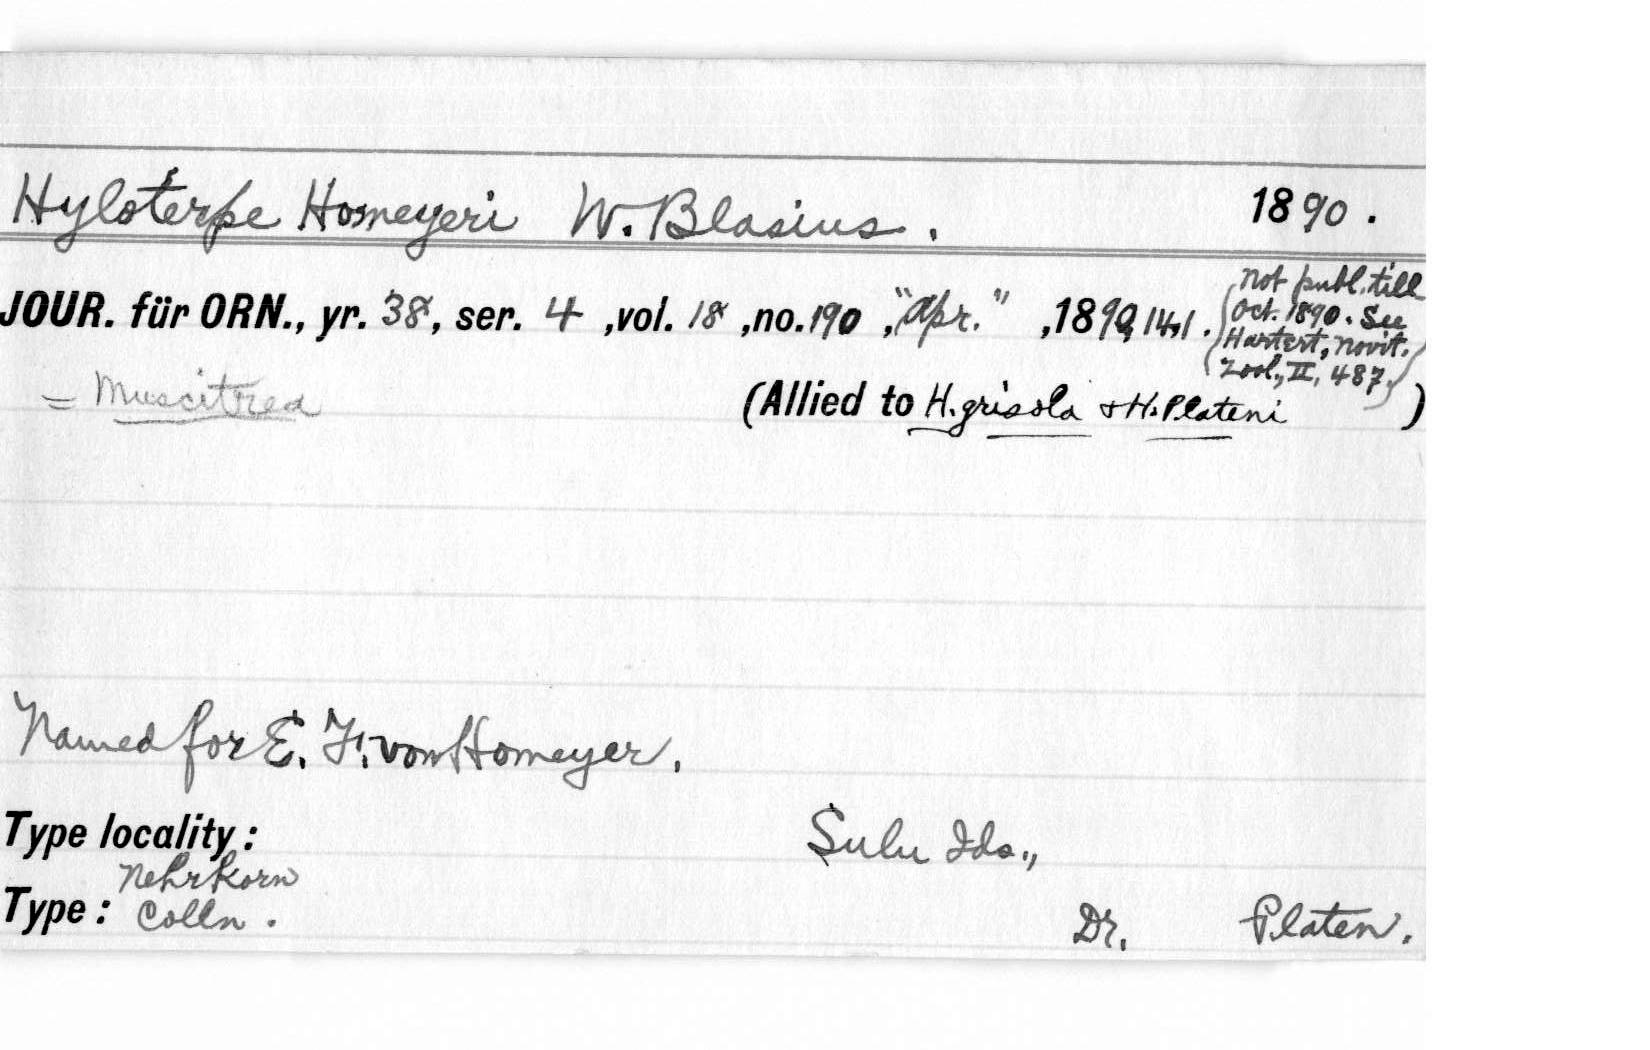 Hyloterpe Homeyeri W. Blasius. 1890.
JOUR. für ORN., yr. 38, ser. 4, vol. 18, no. 190, "Apr.", 1890, 141.
(Not publ. till
Oct. 1890. See
Hartert, Novit.
Zool., II, 487.)
= Muscitrea
(Allied to H. grisola & H. Plateni)
Named for E. F. von Homeyer.
Type locality: Sulu Ids.,
Nehrkorn
Type: Colln. Dr. Platen.